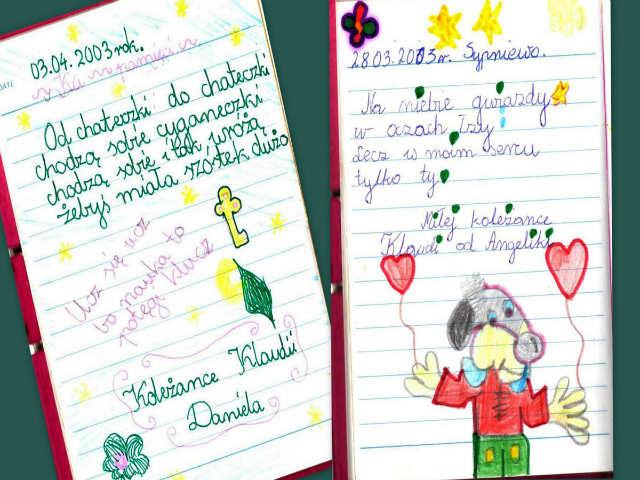 DATE
03.04.2003 rok.
Ku pamięci
Od chateczki do chateczki
chodzą sobie cyganeczki
chodzą sobie i tak wróżą
żebyś miała szóstek dużo
Ucz się ucz
bo nauka to
potęgi klucz
Koleżance Klaudii
Daniela
28.03.2003r. Sypniewo.
Na niebie gwiazdy
w oczach łzy
Lecz w moim sercu
tylko ty
Miłej koleżance
Klaudi od Angeliki